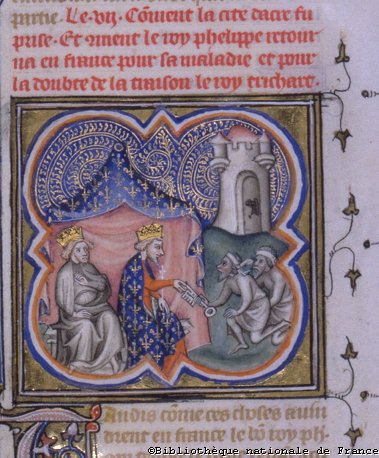 partie. Le. vii. Cõment la cite dacre fu
prise. Et cõment le roy phelippe retour
na en france pour sa maladie et pour
la doubte de la traison le roy richart.
andis cõme ces choses avin
drent en france le bõ roy ph
©Bibliothèque nationale de France